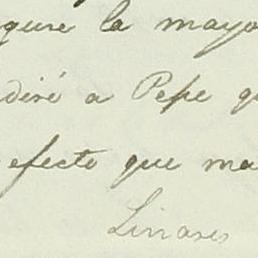 gure la mayo
diré a Pepe q
efecto que ma
Linares